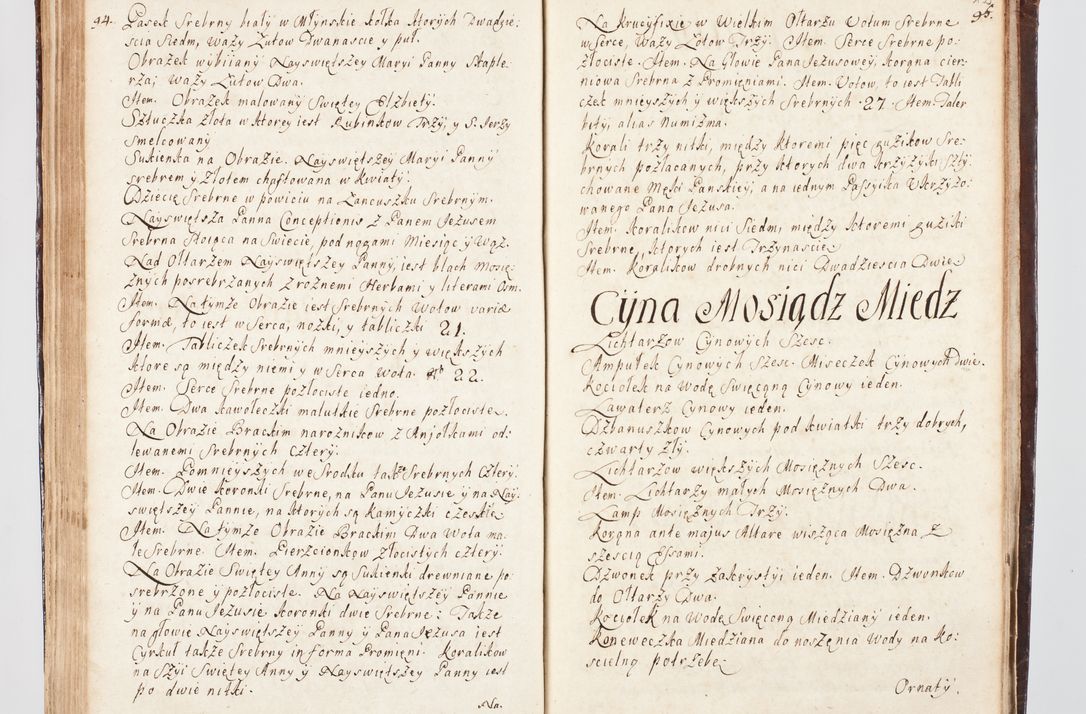 94. Pasek Srebrny biały w Młynskie kółka ktorych Dwadzie:
scia Siedm, Waży Łutow Dwanascie y puł.
Obrazek wybiiany Nayswiętszey Maryi Panny Szaple:
rza; Waży Łutow Dwa.
Item. Obrazek malowany Swiętey Elżbiety.
Sztuczka złota w ktorey iest Rubinkow Trzy, y S. Jerzy
smelcowany
Sukienka na Obrazie Nayswiętszey Maryi Panny
srebrem y złotem chaftowana w kwiaty.
Dziecię Srebrne w powiciu na Łancuszku Srebrnym.
Nayswiętsza Panna Conceptionis z Panem Jezusem
Srebrna stoiąca na Swiecie, pod nogami Miesiąc y Wąż.
Nad Ołtarzem Nayswiętszey Panny, iest blach Mosię:
żnych posrebrzanych z rożnemi Herbami y literami Osm.
Item. Na tymże Obrazie iest Srebrnych Wotow variæ
formæ, to iest w Serca, nożki, y tabliczki 21.
Item. Tabliczek Srebrnych mnieyszych y większych
ktore są między niemi y w Serca Wota. No 22.
Item. Serce Srebrne pozłociste iedno.
Item. Dwa kawołeczki malutkie Srebrne pozłociste.
Na Obrazie Brackim narożnikow z Anjołkami od:
lewanemi Srebrnych Cztery.
Item. Pomnieyszych we Srodku także Srebrnych Cztery.
Item. Dwie Koronki Srebrne, na Panu Jezusie y na Nay:
swiętszey Pannie, na ktorych są kamyczki czeskie
Item. Na tymże Obrazie Brackim Dwa Wota ma:
łe Srebrne. Item. Pierzcionkow złocistych cztery.
Na Obrazie Swiętey Anny są Sukienki drewniane po:
srebrzone y pozłociste. Na Nayswiętszey Pannie
y na Panu Jezusie Koronki dwie Srebrne: Także
na głowie Nayswiętszey Panny y Pana Jezusa iest
Cyrkuł także Srebrny in forma Promieni. Koralikow
na Szyi Swiętey Anny y Nayswiętszey Panny iest
po dwie nitki.
Na.
95.
Na Krucyfixie w Wielkim Ołtarzu Votum Srebrne
w Serce, Waży Łotow Trzy. Item. Serce Srebrne po:
złociste. Item. Na Głowie Pana Jezusowey, Korona cier:
niowa Srebrna z Promieniami. Item. Votow, to iest Tabli
czek mnieyszych y większych Srebrnych 27. Item Taler
bity, alias Numizma.
Korali trzy nitki, między ktoremi pięc guzikow Sre:
brnych pozłacanych, przy ktorych dwa krzyżyki Szty:
chowane Męki Panskiey, a na iednym Passyika Vkrzyżo:
wanego Pana Jezusa.
Item. Koralikow nici Siedm, między ktoremi guziki
Srebrne, ktorych iest Trzynascie
Item. Koralikow drobnych nici Dwadziescia Dwie
Cyna Mosiądz Miedz
Lichtarzow Cynowych Szesc.
Ampułek Cynowych Szesc. Miseczek Cynowych Dwie.
Kociołek na Wodę Swięconą Cynowy ieden.
Lawaterz Cynowy ieden.
Dzbanuszkow Cynowych pod kwiatki trzy dobrych,
czwarty zły.
Lichtarzow większych Mosiężnych Szesc.
Item. Lichtarzy małych Mosiężnych Dwa.
Lamp Mosiężnych Trzy.
Korona ante majus Altare wisząca Mosiężna, z
szescią Essami.
Dzwonek przy Zakrystyi ieden. Item. Dzwonkow
do Ołtarzy Dwa.
Kociołek na Wodę Swięconą Miedziany ieden.
Koneweczka Miedziana do noszenia Wody na Ko:
scielną potrzebę.
Ornaty.